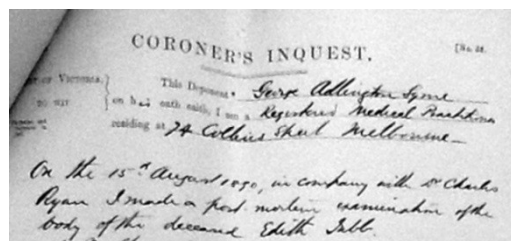 CORONER'S INQUEST.
[No. 21.
of Victoria,
This Deponent George Adlington Syme
TO WIT
on his oath saith, I am a Registered Medical Practitioner
residing at 74 Collins Street Melbourne
On the 15th August 1890, in company with Dr Charles
Ryan I made a post-mortem examination of the
body of the deceased Edith Tubb.